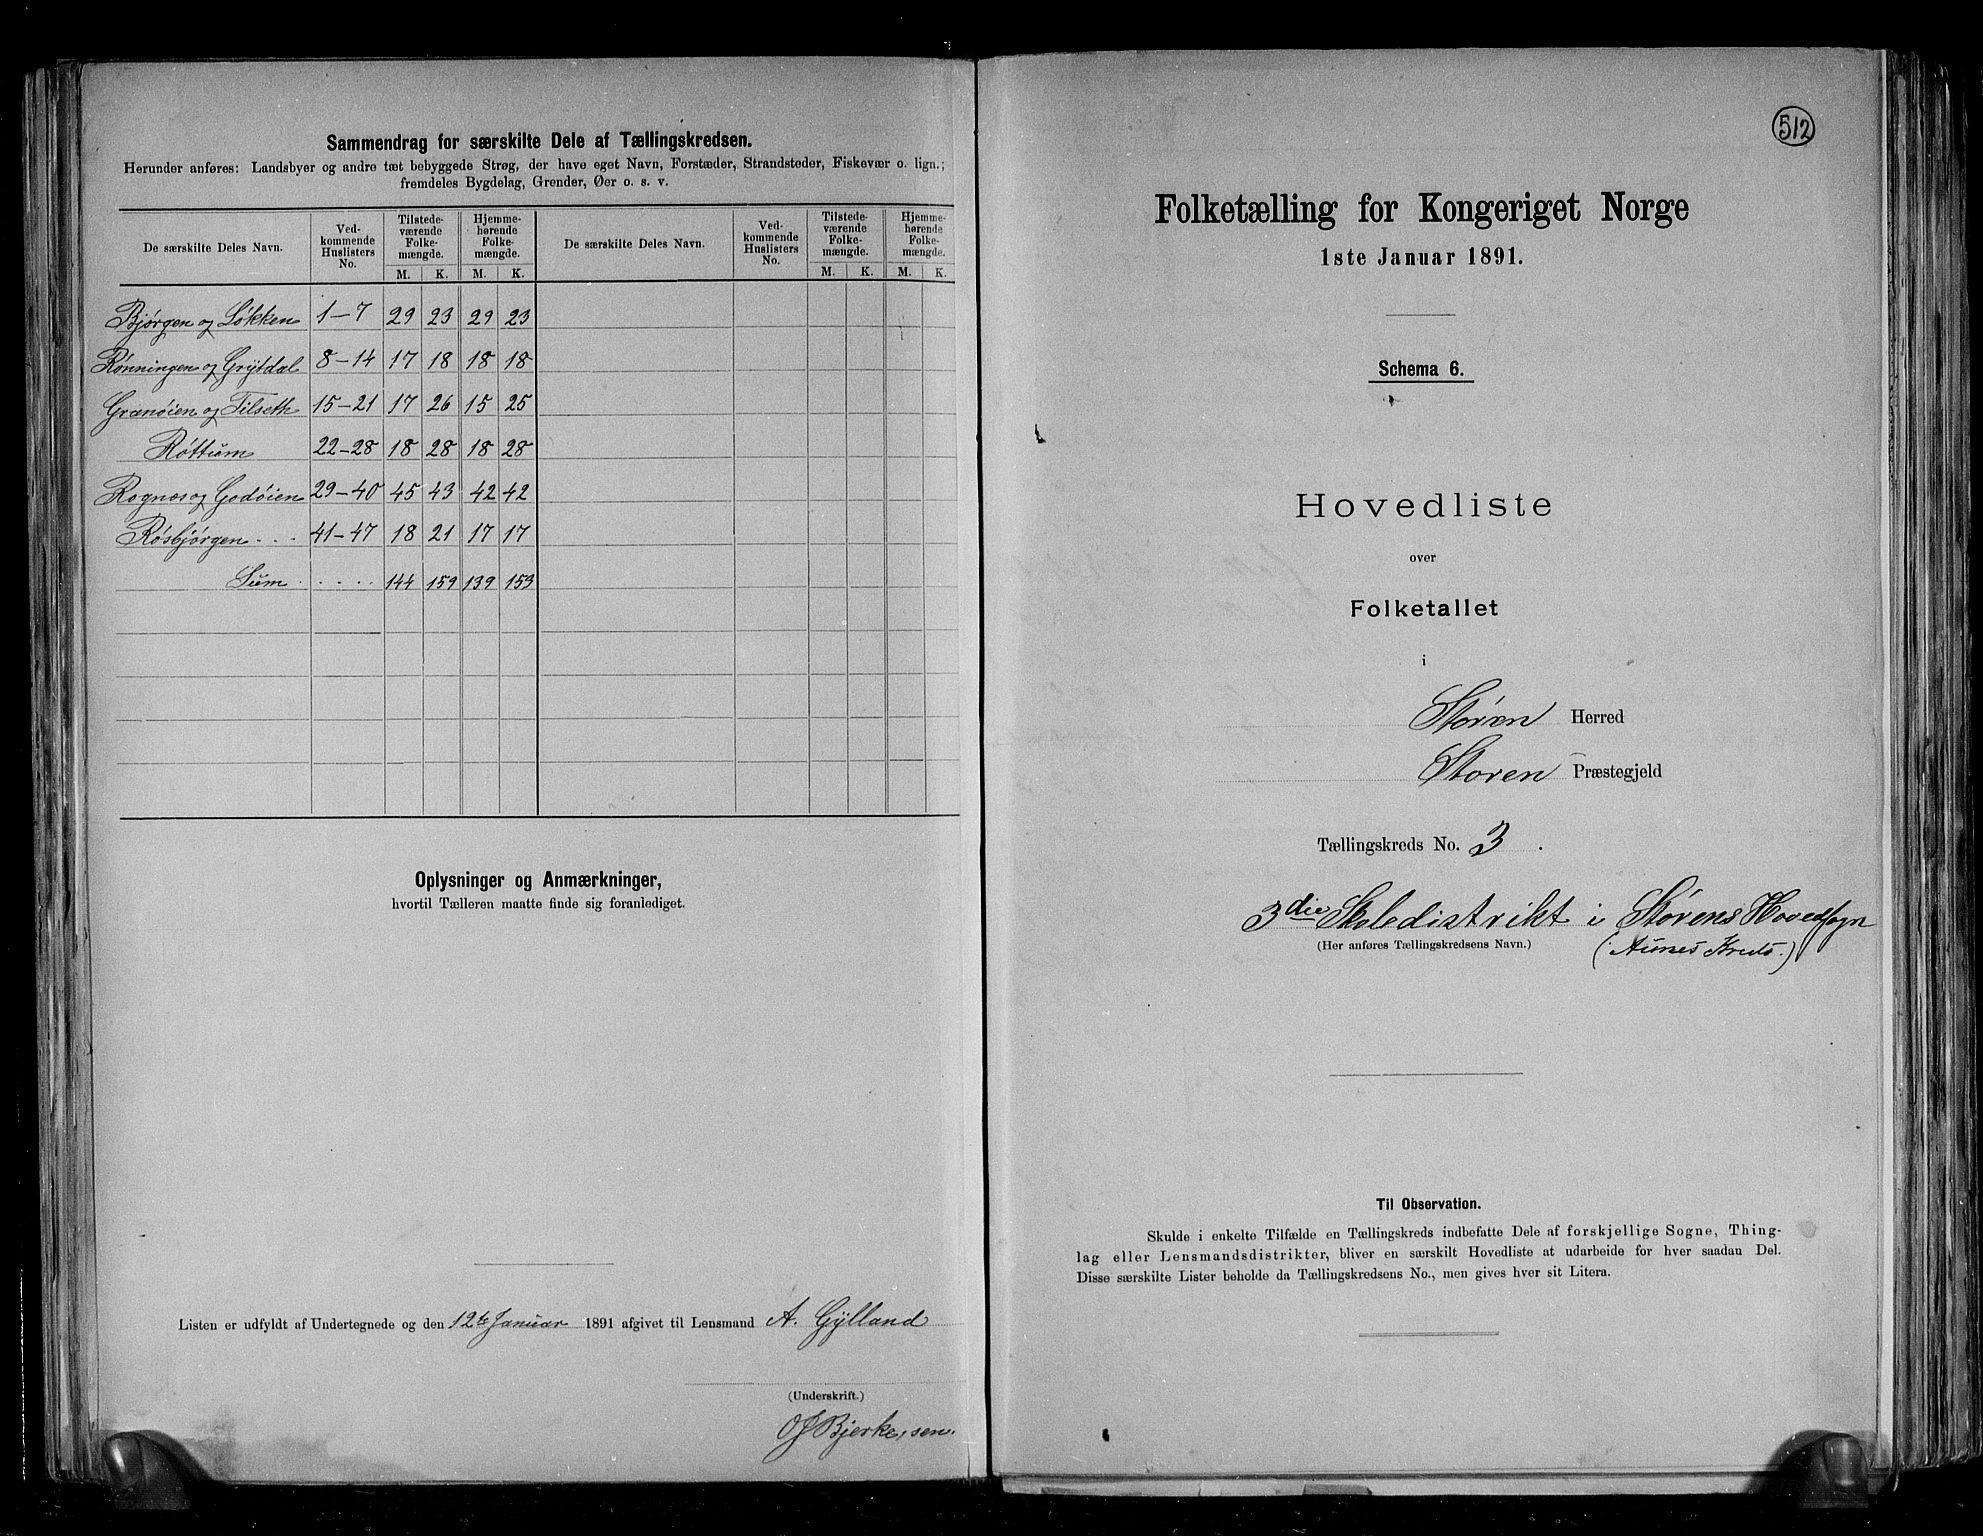 Sammendrag for særskilte Dele af Tællingskredsen.
Herunder anføres: Landsbyer og andre tæt bebyggede Strøg, der have eget Navn, Forstæder, Strandsteder, Fiskevær o. lign.;
fremdeles Bygdelag, Grender, Øer o. s. v.
De særskilte Deles Navn. Ved-kommende Huslisters No. Tilstede-værende Folke-mængde. Hjemme-hørende Folke-mængde. De særskilte Deles Navn. Ved-kommende Huslisters No. Tilstede-værende Folke-mængde. Hjemme-hørende Folke-mængde.
M. K. M. K. M. K. M. K.
Bjørgen og Løkken 1-7 29 23 29 23
Rønningen og Grytdal 8-14 17 18 18 18
Granøien og Tilseth 15-21 17 26 15 25
Røttum 22-28 18 28 18 28
Rognæs og Godøien 29-40 45 43 42 42
Røsbjørgen . . . 41-47 18 21 17 17
Sum . . . . . 144 159 139 153
Oplysninger og Anmærkninger,
hvortil Tælleren maatte finde sig foranlediget.
Listen er udfyldt af Undertegnede og den 12te Januar 1891 afgivet til Lensmand A. Gylland
(Underskrift.)
OJ Bjerke, sen.
512
Folketælling for Kongeriget Norge
1ste Januar 1891.
Schema 6.
Hovedliste
over
Folketallet
i
Støren Herred
Støren Præstegjeld
Tællingskreds No. 3.
3die Skoledistrikt i Størens Hovedsogn
(Her anføres Tællingskredsens Navn.) (Aunes Kreds.)
Til Observation.
Skulde i enkelte Tilfælde en Tællingskreds indbefatte Dele af forskjellige Sogne, Thing-
lag eller Lensmandsdistrikter, bliver en særskilt Hovedliste at udarbeide for hver saadan Del.
Disse særskilte Lister beholde da Tællingskredsens No., men gives hver sit Litera.